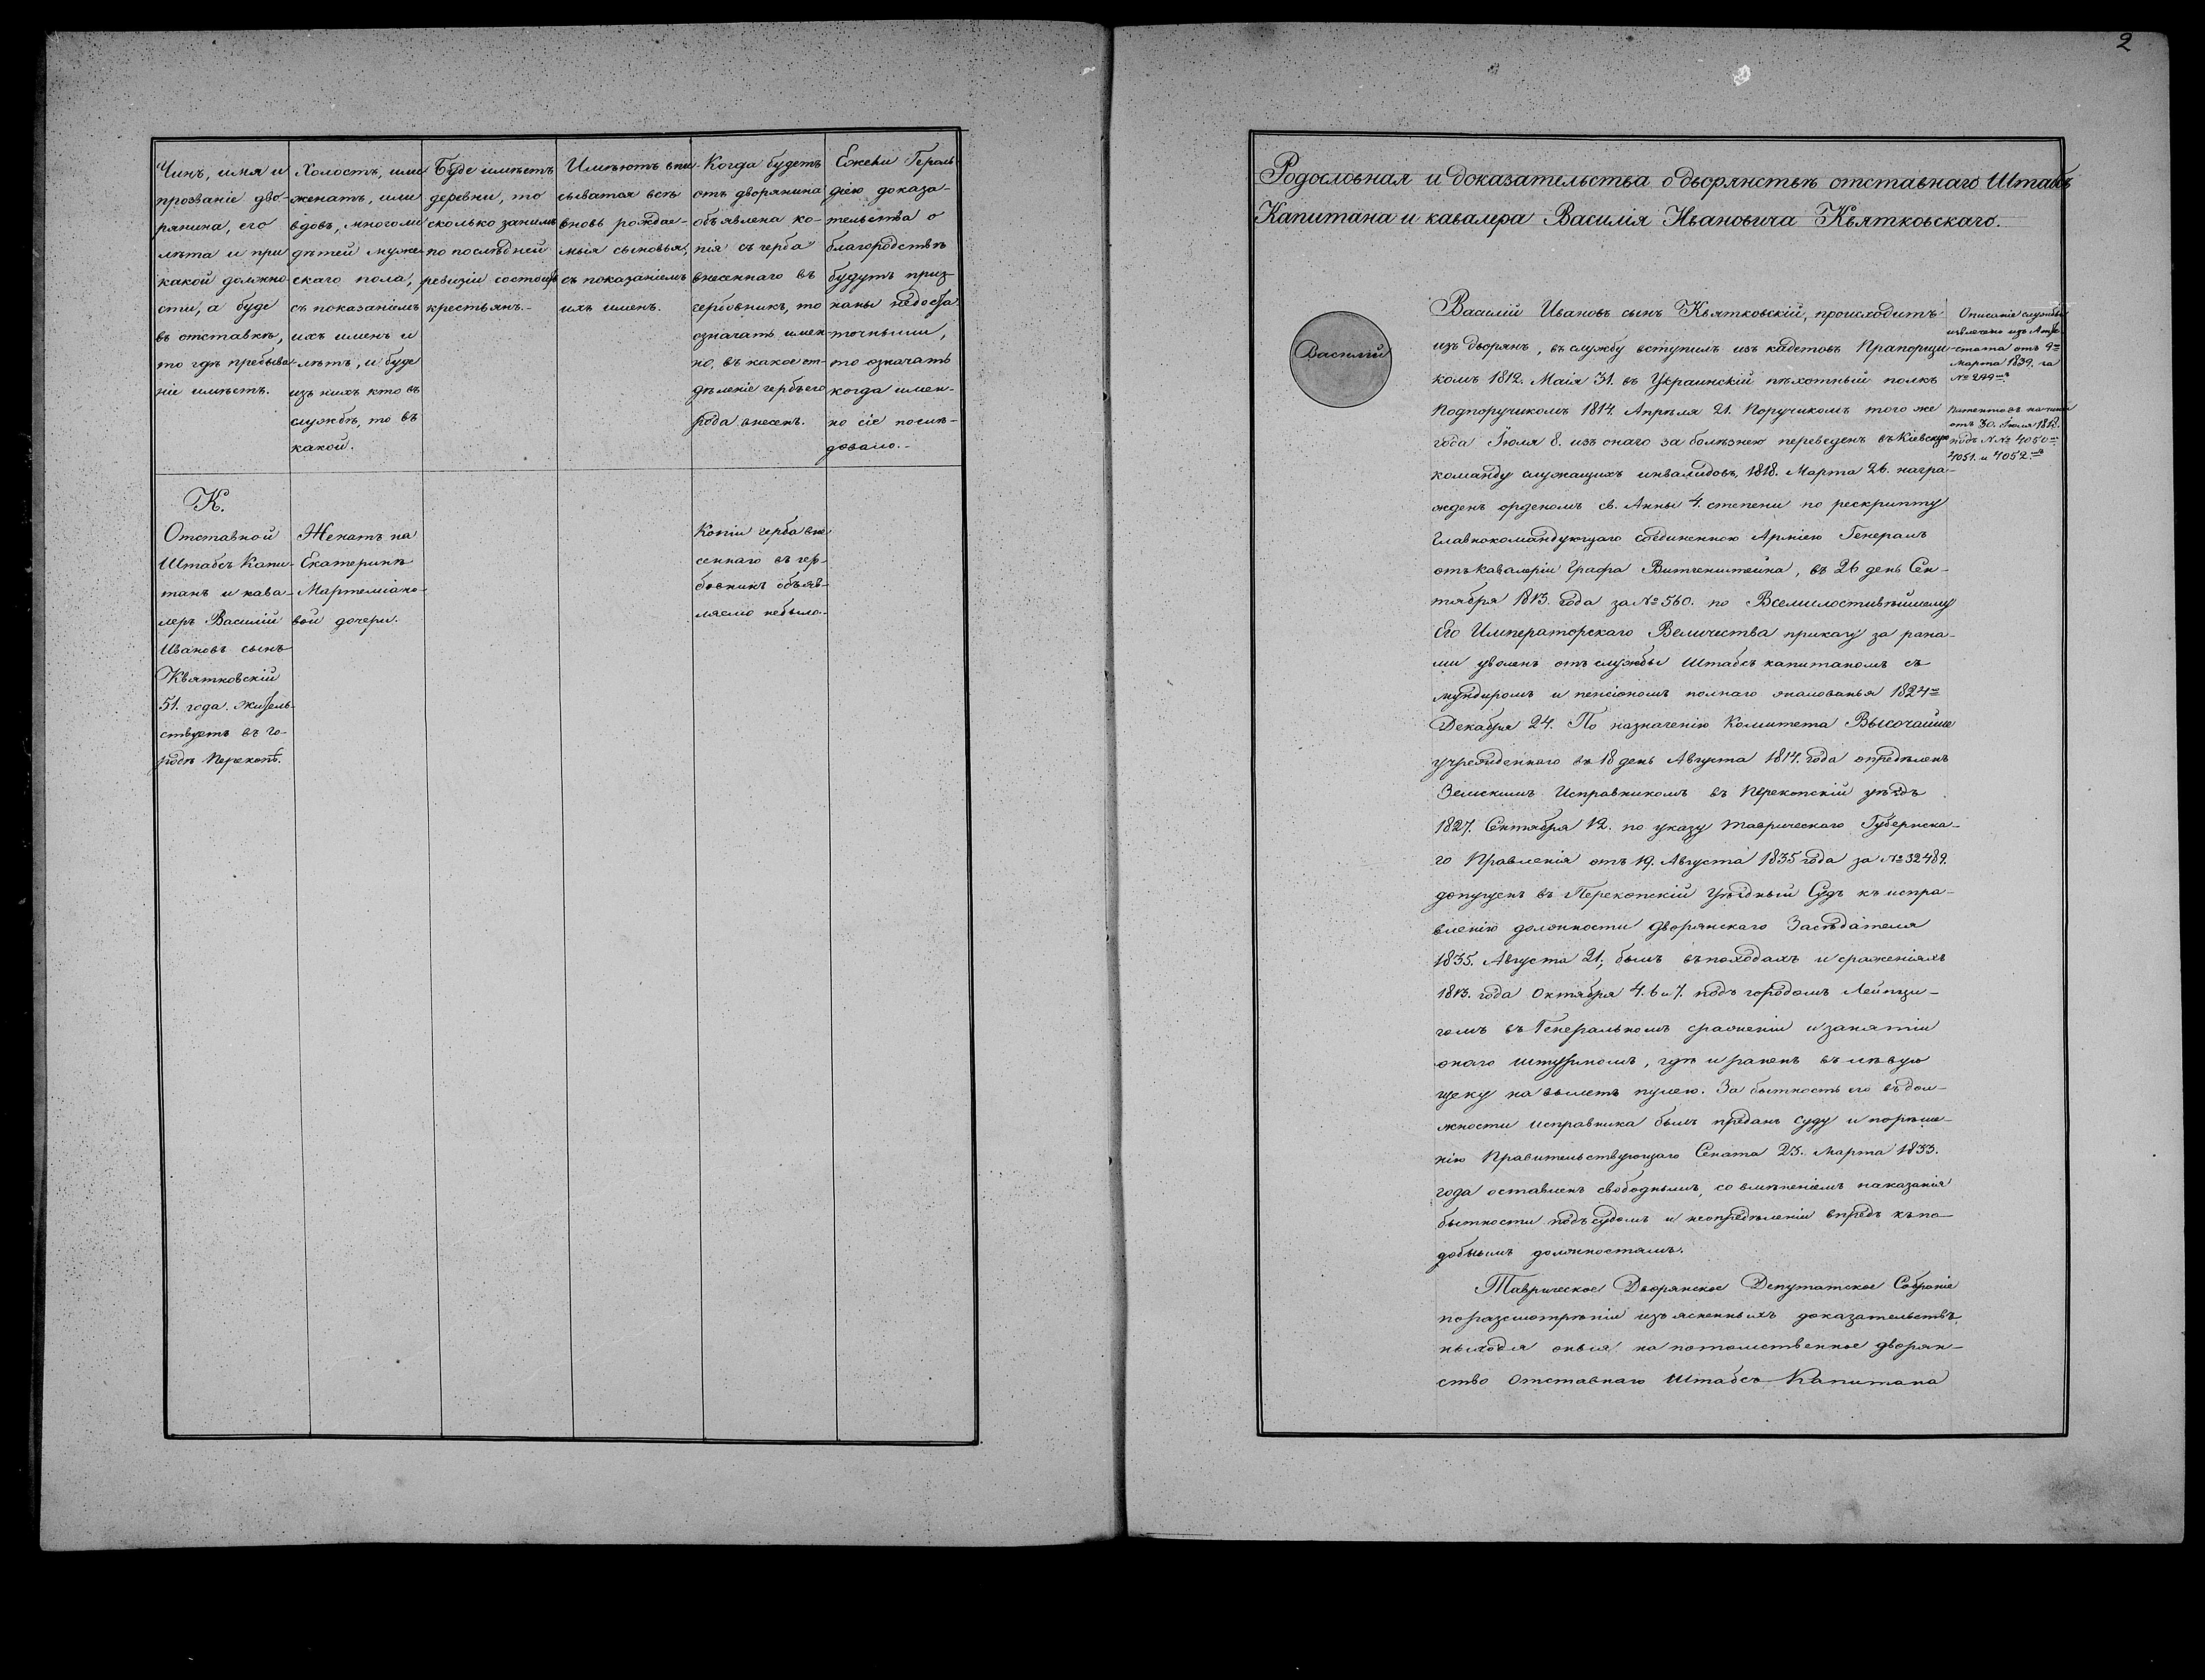 Чинъ, имя и
прозваніе дво-
рянина, его
лѣта и при
какой должно-
сти, а буде
въ отставкѣ,
то гдѣ пребыва-
ніе имѣетъ.
Холостъ, или
женатъ, или
вдовъ, многоли
дѣтей муже-
скаго пола,
съ показаніемъ
ихъ именъ и
лѣтъ, и буде
изъ нихъ кто въ
службѣ, то въ
какой.
Буде имѣетъ
деревни, то
сколько занимъ
по послѣдней
ревизіи состоитъ
крестьянъ.
Имѣютъ впи-
сыватся всѣ
вновь рождае-
мыя сыновья,
съ показаніемъ
ихъ именъ.
Когда будетъ
отъ дворянина
объявлена ко-
пія съ герба
внесеннаго въ
гербовникъ, то
означать имен-
но, въ какое от-
дѣленіе гербъ его
рода внесенъ.
Ежели Героль-
діею доказа-
тельства о
благородствѣ
будутъ приз-
наны недоста-
точными,
то означать
когда имен-
но сіе послѣ-
довало.
К.
Отставной
Штабсъ Капи-
танъ и кава-
леръ Василій
Ивановъ сынъ
Квятковскій
51. года. жи­тель-
ствуетъ въ го-
родѣ Перекопѣ.
Женатъ на
Екатеринѣ
Мартеміано-
вой дочери.
Копіи герба вне
сеннаго въ гер-
бовникъ объяв-
ляемо небыло.
2
Родословная и доказательства о дворянствѣ отставнаго Штабсъ
Капитана и кавалера Василія Ивановича Квятковскаго.
Василій
Василій Ивановъ сынъ Квятковскій, происходитъ
изъ дворянъ, въ службу вступилъ изъ кадетовъ Прапорщи-
комъ 1812. Маія 31. въ Украинскій пѣхотный полкъ
Подпоручикомъ 1814. Апрѣля 21. Поручикомъ того же
года Іюля 8. изъ онаго за болѣзнею переведенъ въ Кіевскую
команду служащихъ инвалидовъ, 1818. Марта 26. награ-
жденъ орденомъ св. Анны 4. степени по рескрипту
Главнокомандующаго соединенною Арміею Генерала
отъ кавалеріи Графа Витгенштейна, въ 26 день Сен-
тября 1813. года за № 560. по Всемилостивѣйшему
Его Императорскаго Величества приказу за рана-
ми уволенъ отъ службы Штабсъ капитаномъ съ
мундиромъ и пенсіономъ полнаго жалованья 1824го
Декабря 24. По назначенію Комитета Высочайше
учрежденнаго въ 18 день Августа 1814. года опредѣленъ
Земскимъ Исправникомъ въ Перекопскій уѣздъ
1827. Сентября 12. по указу Таврическаго Губернска-
го Правленія отъ 19. Августа 1835 года за № 32489.
допущенъ въ Перекопскій Уѣздный Судъ къ испра-
вленію должности Дворянскаго Засѣдателя
1835. Августа 21; былъ въ походахъ и сраженіяхъ
1813. года Октября 4. 6 и 7. подъ городомъ Лейпци-
гомъ въ Генеральномъ сраженіи и занятіи
онаго штурмомъ, гдѣ и раненъ въ лѣвую
щеку на вылетъ пулею. За бытность его въ дол-
жности исправника былъ преданъ суду и порѣше-
нію Правительствующаго Сената 23. Марта 1833.
года оставленъ свободнымъ, со вмѣненіемъ наказанія
бытности подъ судомъ и неопредѣленіи впредь къ по-
добнымъ должностямъ.
Таврическое Дворянское Депутатское Собраніе
поразсмотрѣніи изъясненныхъ доказательствъ,
находя оныя на потомственное дворян-
ство Отставнаго Штабсъ Капитана
Описаніе службы
извлечено изъ Атте-
стата отъ 9го
марта 1839. за
№ 299мъ
Патентовъ на чины
отъ 30. Іюля 1818.
подъ №№ 4050мъ
4051. и 4052мъ